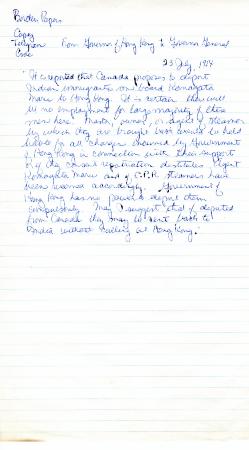 Borden Papers
Copy
Telegram from Governor Hong Kong to Governor General
Code
23 July, 1914
"It is reported that Canada proposes to deport
Indian immigrants on board Komagata
Maru to Hong Kong. It is certain there will
be no employment for large majority of these
men here. Master, owner, or agent of steamer
by which they are brought back would be held
liable for all charges incurred by Government
of Hong Kong in connection with their support
or if the cause repatriation destitutes. Agent
Komagata Maru and of C.P.R. steamers have
been warned accordingly. Government of
Hong Kong has no power to deport them
compulsorily. May I suggest that if deported
from Canada they may be sent back to
India without calling at Hong Kong."